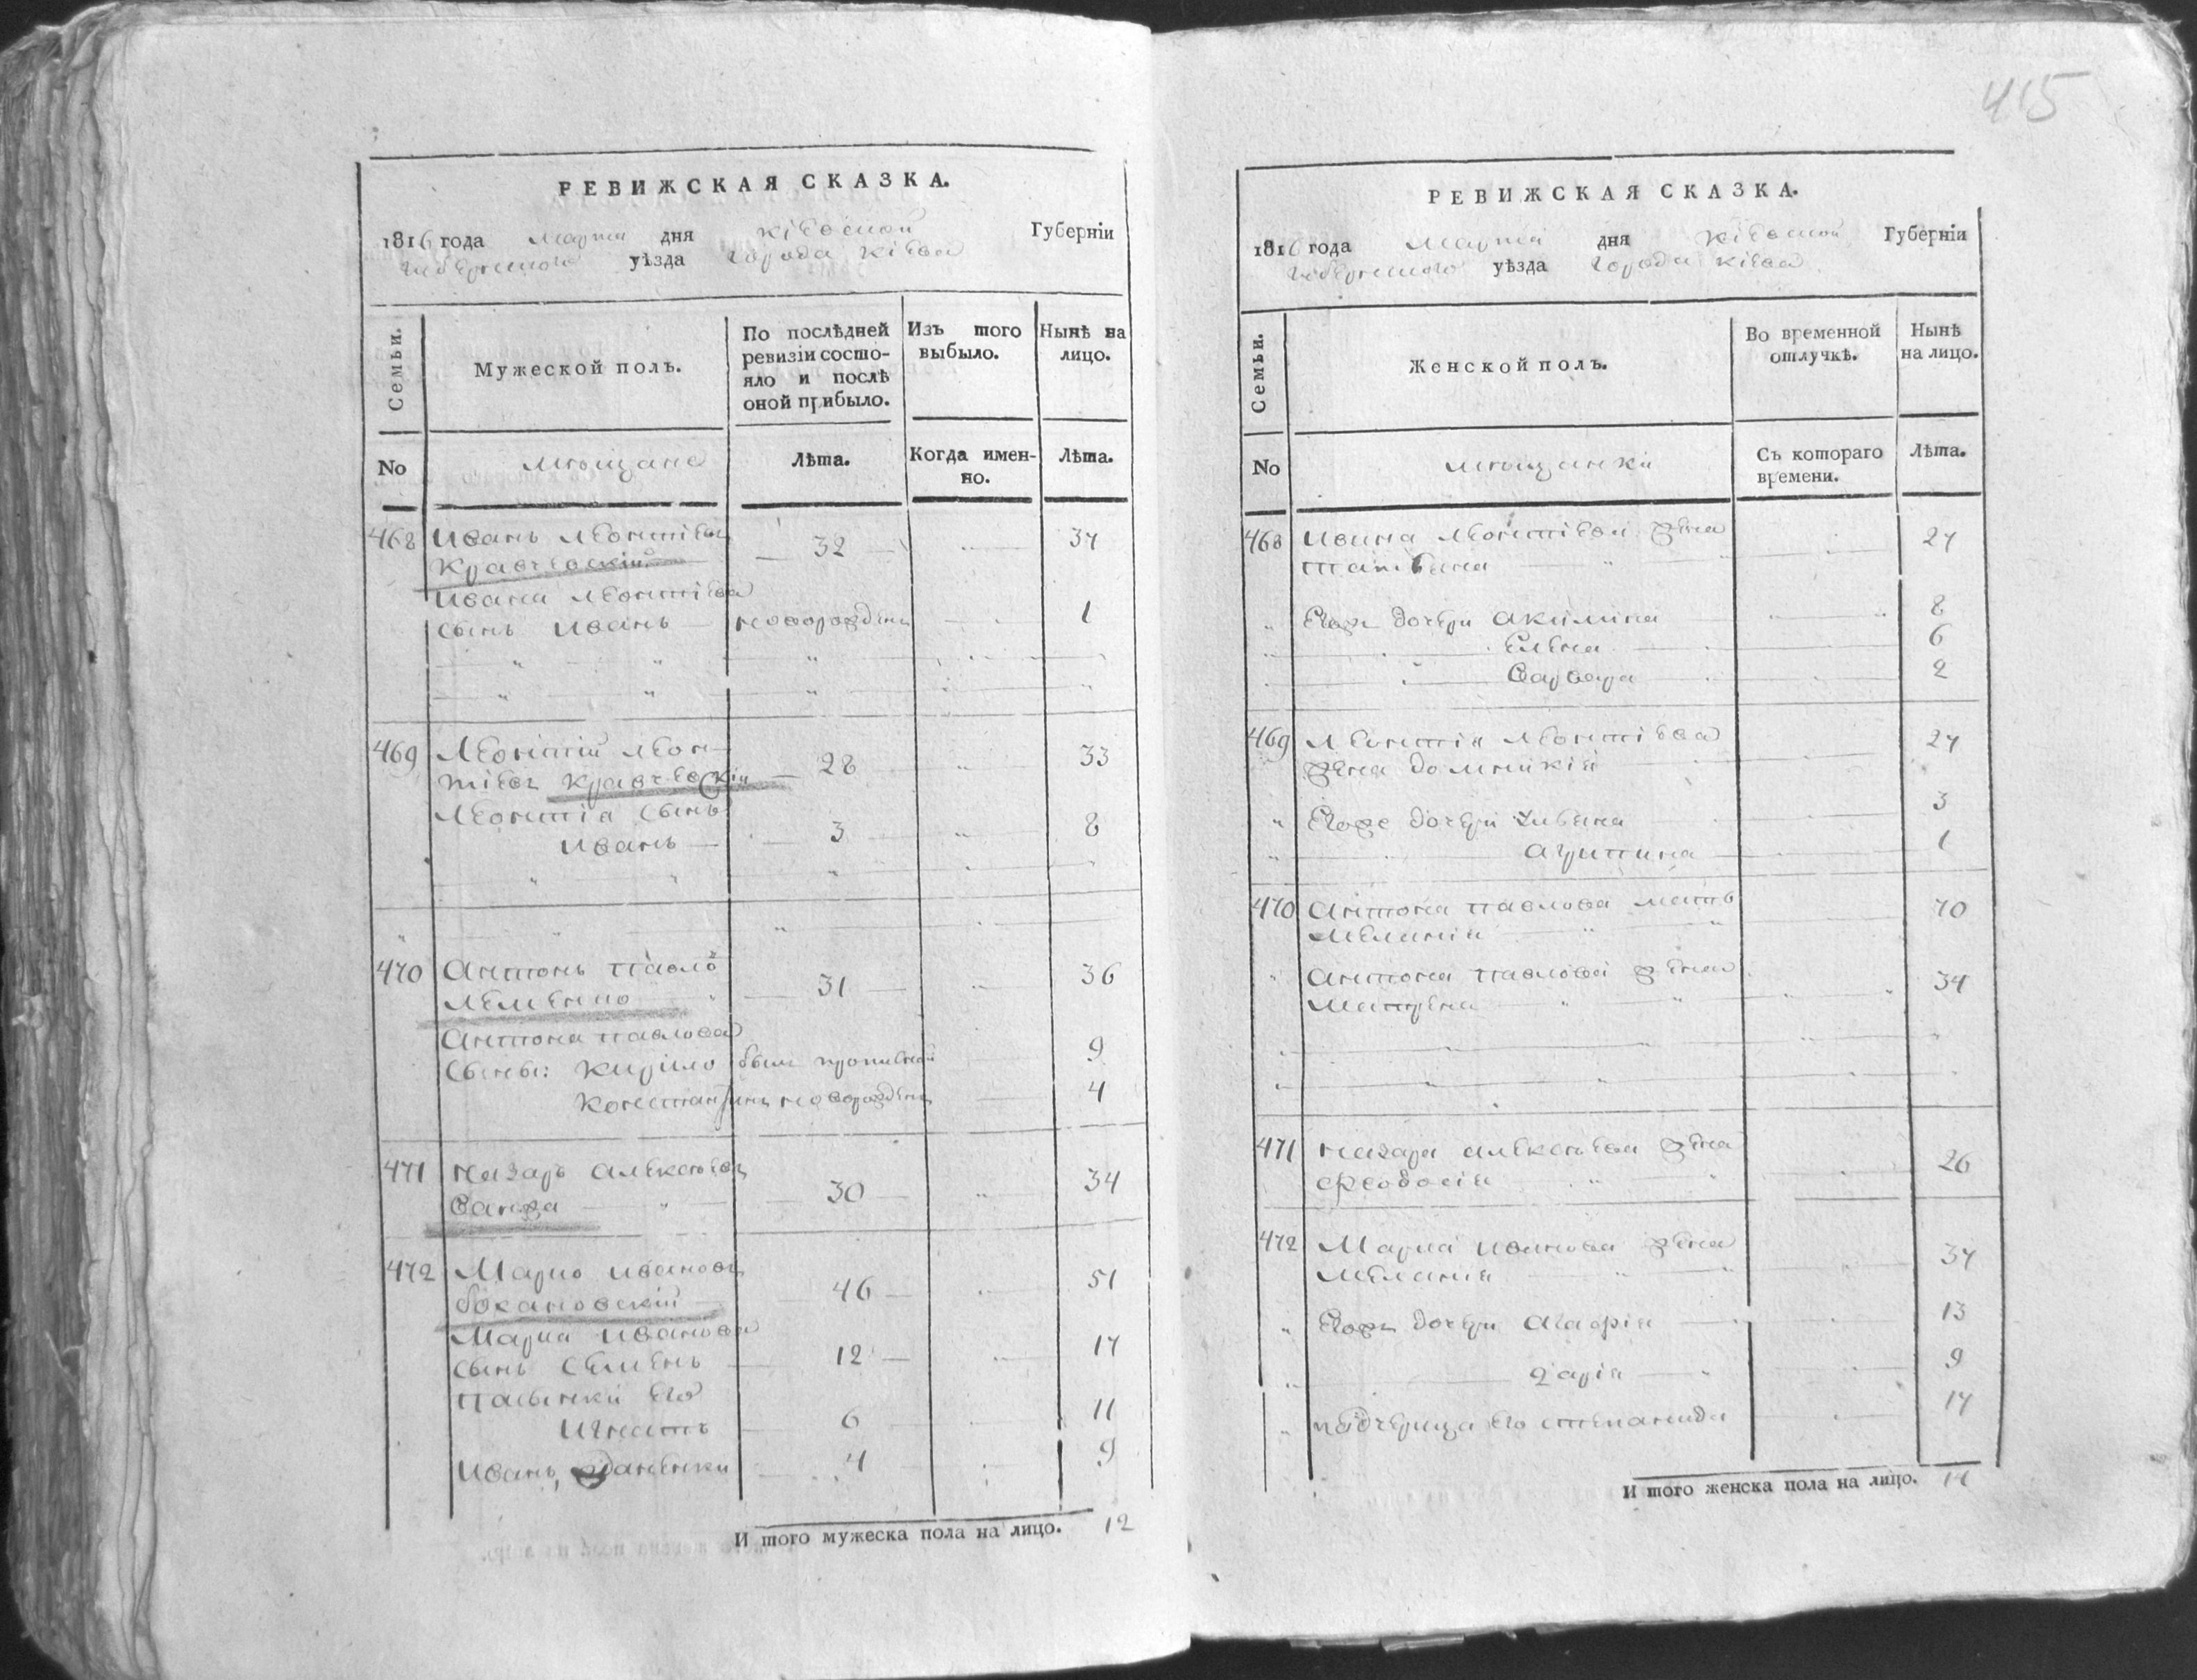 415
РЕВИЖСКАЯ СКАЗКА.
1816 года Марта дня Кіевской Губерніи
Губернского уѣзда Города Кіева
Семьи.
Мужеской полъ.
По послѣдней ревизіи состо-
яло и послѣ оной прибыло.
Изъ того выбыло.
Нынѣ на лицо.
No
мѣщане
Лѣта.
Когда имен-
но.
Лѣта.
468 Иванъ Леонтіевъ
Кравчевскій 32 37
Ивана Леонтіева
сынъ Иванъ новорожденъ 1
469 Леонтій Леон-
тіевъ Кравчевскій 28 33
Леонтія сынъ
Иванъ 3 8
470 Антонъ Павло
Леменко 31 36
Антона Павлова
сыны: Кирило былъ прописной 9
Константинъ новорожденъ 4
471 Назаръ Алексѣевъ
Ванжа 30 34
472 Марко Ивановъ
Бохановскій 46 51
Марка Иванова
сынъ Семенъ 12 17
пасынки его
Игнатъ 6 11
Иванъ, 4 9
И того мужеска пола на лицо. 12
РЕВИЖСКАЯ СКАЗКА.
1816 года Марта дня Кіевской Губерніи
Губернского уѣзда Города Кіева
Семьи.
Женской полъ.
Во временной отлучкѣ.
Нынѣ на лицо.
No
мѣщанки
Съ котораго времени.
Лѣта.
468 Ивана Леонтіева жена
Татіана 27
Егожъ дочери Акилина 8
Елена 6
Варвара 2
469 Леонтія Леонтіева 27
жена Домникія
Егоже дочери Уліяна 3
Агрипина 1
470 Антона Павлова мать 70
Меланія
Антона Павлова жена 34
Матрена
471 Назара Алексѣева жена
Феодосія 26
472 Марка Иванова жена
Меланія 37
Егожъ дочери Агафія 13
Дарія 9
подчерица его Степанида 17
И того женска пола на лицо. 14